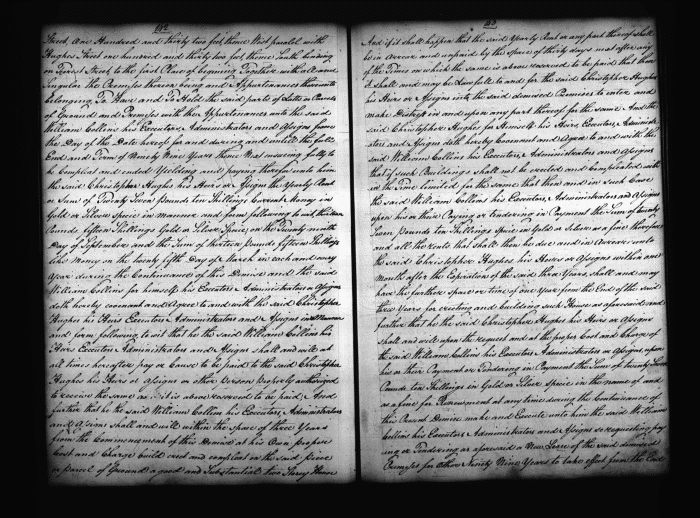 142
Street, One Hundred and thirty two feet thence West parallel with
Hughes Street one hundred and thirty two feet thence South binding
on Forrest Street to the first Place of begining Together with all and
Singular the Premises thereon being and Appurtenances thereunto
belonging To Have and To Hold the said parts of Lotts or Parcels
of Ground and Premises with their Appurtenances unto the said
William Collins his Executors Administrators and Assigns from
the Day of the Date hereof for and during and untill the full
End and Term of Ninety Nine Years thence Next ensuing fully to
be Compleat and ended Yielding and paying therefor unto him
the said Christopher Hughes his Heirs or Assigns the Yearly Rent
or Sum of Twenty Seven Pounds ten Shillings Current Money in
Gold or Silver Specie in manner and form following to wit thirteen
Pounds fifteen Shillings Gold or Silver Specie on the Twenty ninth
Day of September and the Sum of thirteen Pounds fifteen Shillings
like Money on the twenty fifth Day of March in each and every
Year during the Continuance of this Demise and the said
William Collins for himself his Executors Administrators or Assigns
doth hereby covenant and Agree to and with the said Christopher
Hughes his Heirs Executors Administrators and Assigns in Manner
and form following to wit that he the said William Collins his
Heirs Executors Administrators and Assigns shall and will at
all times hereafter pay or Cause to be paid to the said Christopher
Hughes his Heirs or Assigns or other Person Properly authorized
to receive the same as it is above reserved to be paid And
further that he the said William Collins his Executors Administrators
and Assigns Shall and will within the space of three Years
from the Commencement of this Demise at his Own proper
Cost and Charge build erect and compleat on the said piece
or parcel of Ground a good and Substantial two Storey House
143
And if it shall happen that the said Yearly Rent or any part thereof shall
be in Arrear and unpaid by the space of thirty days next after any
of the Times in which the same is above reserved to be paid that then
it shall and may be Lawfull to and for the said Christopher Hughes
his Heirs or Assigns into the said demised Premises to enter and
make Distress in and upon any part thereof for the same And the
said Christopher Hughes for himself his Heirs, Executors, Administr
ators and Assigns doth hereby Covenant and Agree to and with the
said William Collins his Executors Administrators and Assigns
that if such Buildings shall not be erected and Compleated with
in the time limited for the same that then and in such Case
the said William Collins his Executors Administrators and Assigns
upon his or their Paying or tendering in Payment the Sum of twenty
Seven Pounds ten Shillings Specie in Gold or Silver as a fine therefor
and all the rents that shall then be due and in Arrear unto
the said Christopher Hughes his Heirs or Assigns within six
Months after the Expiration of the said three Years shall and may
have the further space or time of one Year from the End of the said
three Years for erecting and building such House as aforesaid and
further that he the said Christopher Hughes his Heirs or Assigns
shall and will upon the request and at the proper Cost and Charge of
the said William Collins his Executors Administrators or Assigns, upon
his or their Payment or Tendering in Payment the Sum of twenty Seven
Pounds ten Shillings in Gold or Silver Specie in the name of and
as a fine for Renewment at any time during the Continuance of
this Present Demise make and Execute unto him the said William
Collins his Executors Administrators and Assigns so requesting pay
ing or Tendering as aforesaid a New Lease of the said demised
Premises for other Ninety Nine Years to take effect from the End